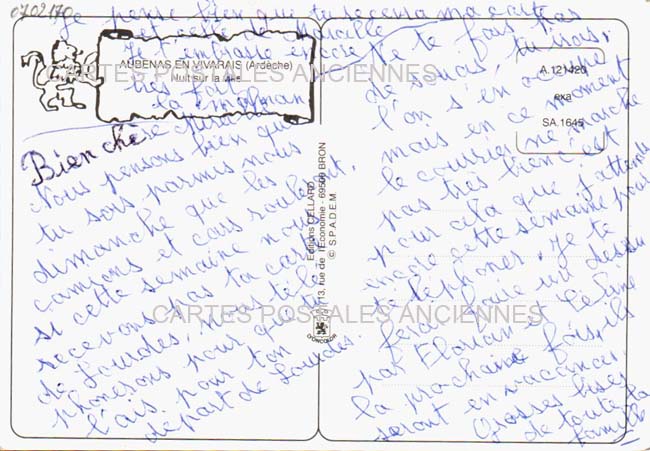 0702170
Je pense bien que tu recevra ma carte
Je t'embrasse encore
très fort
la maman
AUBENAS EN VIVARAIS (Ardèche)
Nuit sur la ville...
CARTES POSTALES ANCIENNES
Bien cher
Nous pensons bien que
tu sois parmis nous
dimanche que les
camions et cars roulent,
si cette semaine nous
recevons pas ta carte
de Lourdes, nous télé
phonerons pour qu'on
l'ais pour ton
départ de Lourdes.
Editions CELLARD
13, rue de l'Economie - 69500 BRON
© S.P.A.D.E.M
CARTES POSTALES ANCIENNES
A.121420
exa
SA.1645
Ne te fais pas
de soucis, tu vois,
l'on s'en
mais en ce moment
le courrier ne marche
pas très bien c'est
pour cela que j'attends
encore cette semaine pour
téléphoner. Je te
ferai faire un dessin
par Florian et Céline
la prochaine fois, ils
seront en vacances.
Grosses bises
de toute la
famille